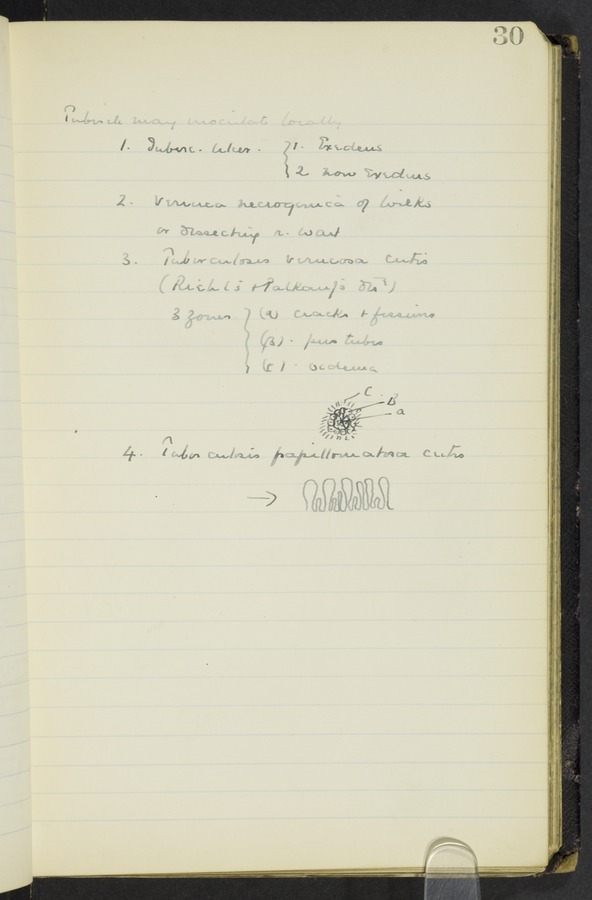 30
Tubercle may inoculate locally
1. Tuberc. Ulcer. } 1. Exedens
2 non Exedens
2. Verruca necrogenica of Wilks
or dissecting r. wart
3. Tuberculosis verrucosa cutis
(Riehl's + Paltauf's dis)
3 zones } (a) cracks + fissures
(B). pustules
(c). oedema
C
B
a
4. Tuberculosis papillomatosa cutis
→